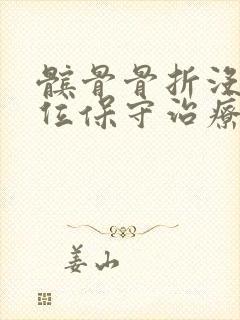 髌骨骨折没
位保守治疗
姜山